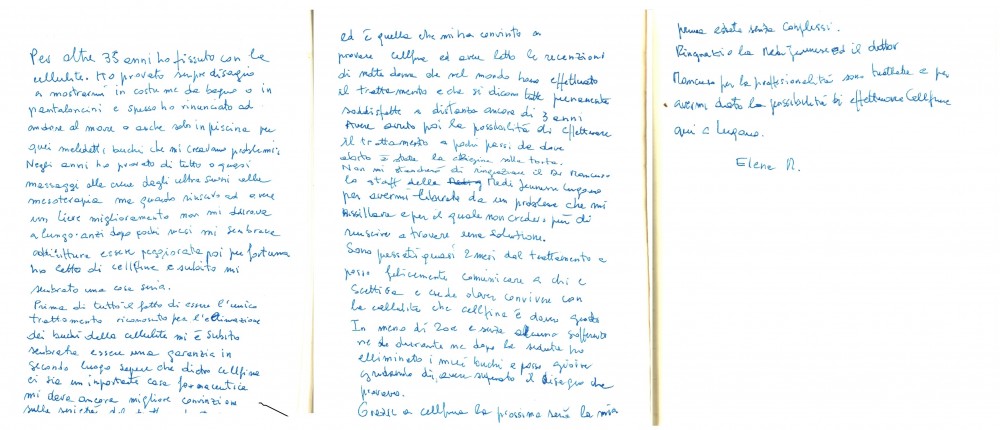 Per oltre 35 anni ho vissuto con la
cellulite. Ho provato sempre disagio
a mostrarmi in costume da bagno o in
pantaloncini e spesso ho rinunciato ad
andare al mare o anche solo in piscina per
quei maledetti buchi che mi creavano problemi.
Negli anni ho provato di tutto o quasi
massaggi alle creme dagli ultra suoni alla
mesoterapia ma quando riuscivo ad avere
un lieve miglioramento non mi durava
a lungo. anzi dopo pochi mesi mi sembrava
addirittura essere peggiorata poi per fortuna
ho letto di cellfina e subito mi
sembrato una cosa seria.
Prima di tutto il fatto di essere l'unico
trattamento riconosciuto per l'eliminazione
dei buchi della cellulite mi è subito
sembrata essere una garanzia in
secondo luogo sapere che dietro cellfina
ci sia un importante casa farmaceutica
mi dava ancora migliore convinzione
sulla serietà del
ed è quella che mi ha convinto a
provare cellfina ed avere letto le recensioni
di molte donne che nel mondo hanno effettuato
il trattamento e che si dicono tutte pienamente
soddisfatte a distanza ancora di 3 anni
Avere avuto poi la possibilità di effettuare
il trattamento a pochi passi da dove
abito è stata la ciliegina sulla torta.
Non mi stancherò di ringraziare il Dr Mancuso
lo staff della Medi Jeunesse Lugano
per avermi liberata da un problema che mi
assillava e per il quale non credevo più di
riuscire a trovare una soluzione.
Sono passati quasi 2 mesi dal trattamento e
posso felicemente comunicare a chi è
scettica e crede dover convivere con
la cellulite che cellfina è davvero
In meno di 2 ore e senza alcuna sofferenza
ne durante ne dopo la seduta ho
elliminato i miei buchi e posso gioire
di avere superato il disagio che
provavo.
Grazie a cellfina la prossima sarà la mia
prima estate senza complessi.
Ringrazio la Medi Jeunesse ed il dottor
Mancuso per la professionalità sono trattata e per
avermi dato la possibilità di effettuare Cellfina
qui a Lugano.
Elena R.